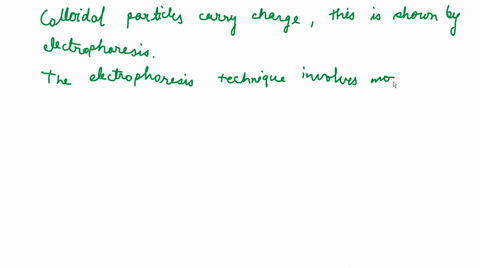 Colloidal particles carry charge, this is shown by
electropharesis.
The electropharesis technique involves mo